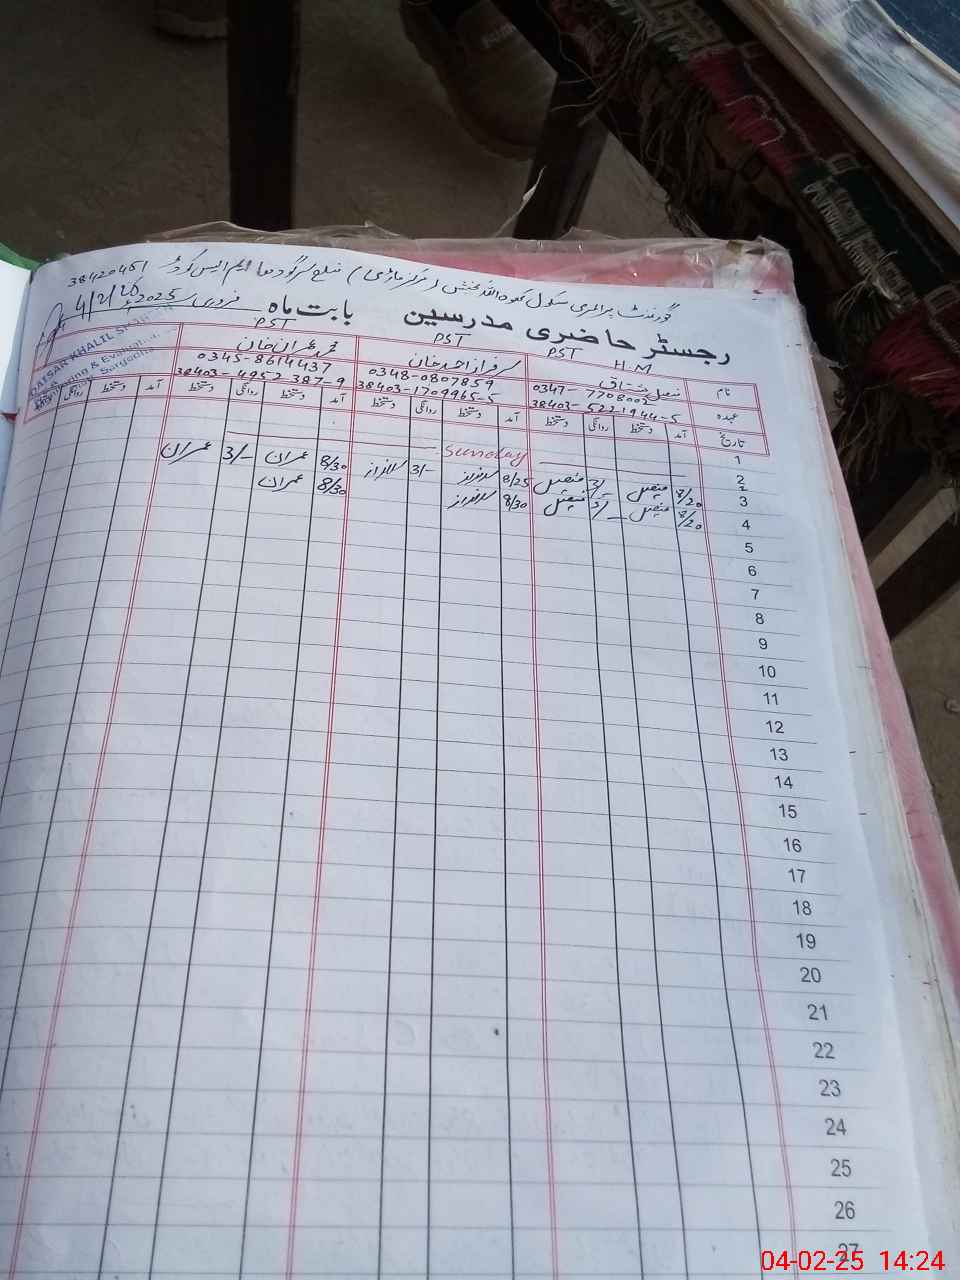 گورنمنٹ پرائمری سکول
ضلع سرگودھا ایم ایس کوڈ 38420451
رجسٹر حاضری مدرسین بابت ماہ فروری 2025ء
4/2/25
QAISAR KHALIL
PST H M
PST
PST
نام
سرفراز احمد خان
محمد عمران خان
0347-7708003
0348-0807859
0345-8614437
عہدہ
38403-5221944-5
38403-1709965-5
38403-4952387-9
تاریخ آمد دستخط روانگی دستخط آمد دستخط روانگی دستخط آمد دستخط روانگی دستخط آمد دستخط روانگی دستخط
1
2 Sunday
3 8/20 فیصل 3/- فیصل 8/25 سرفراز 3/- سرفراز 8/30 عمران 3/- عمران
4 8/20 فیصل فیصل 8/30 سرفراز 8/30 عمران
5
6
7
8
9
10
11
12
13
14
15
16
17
18
19
20
21
22
23
24
25
26
27
04-02-25 14:24